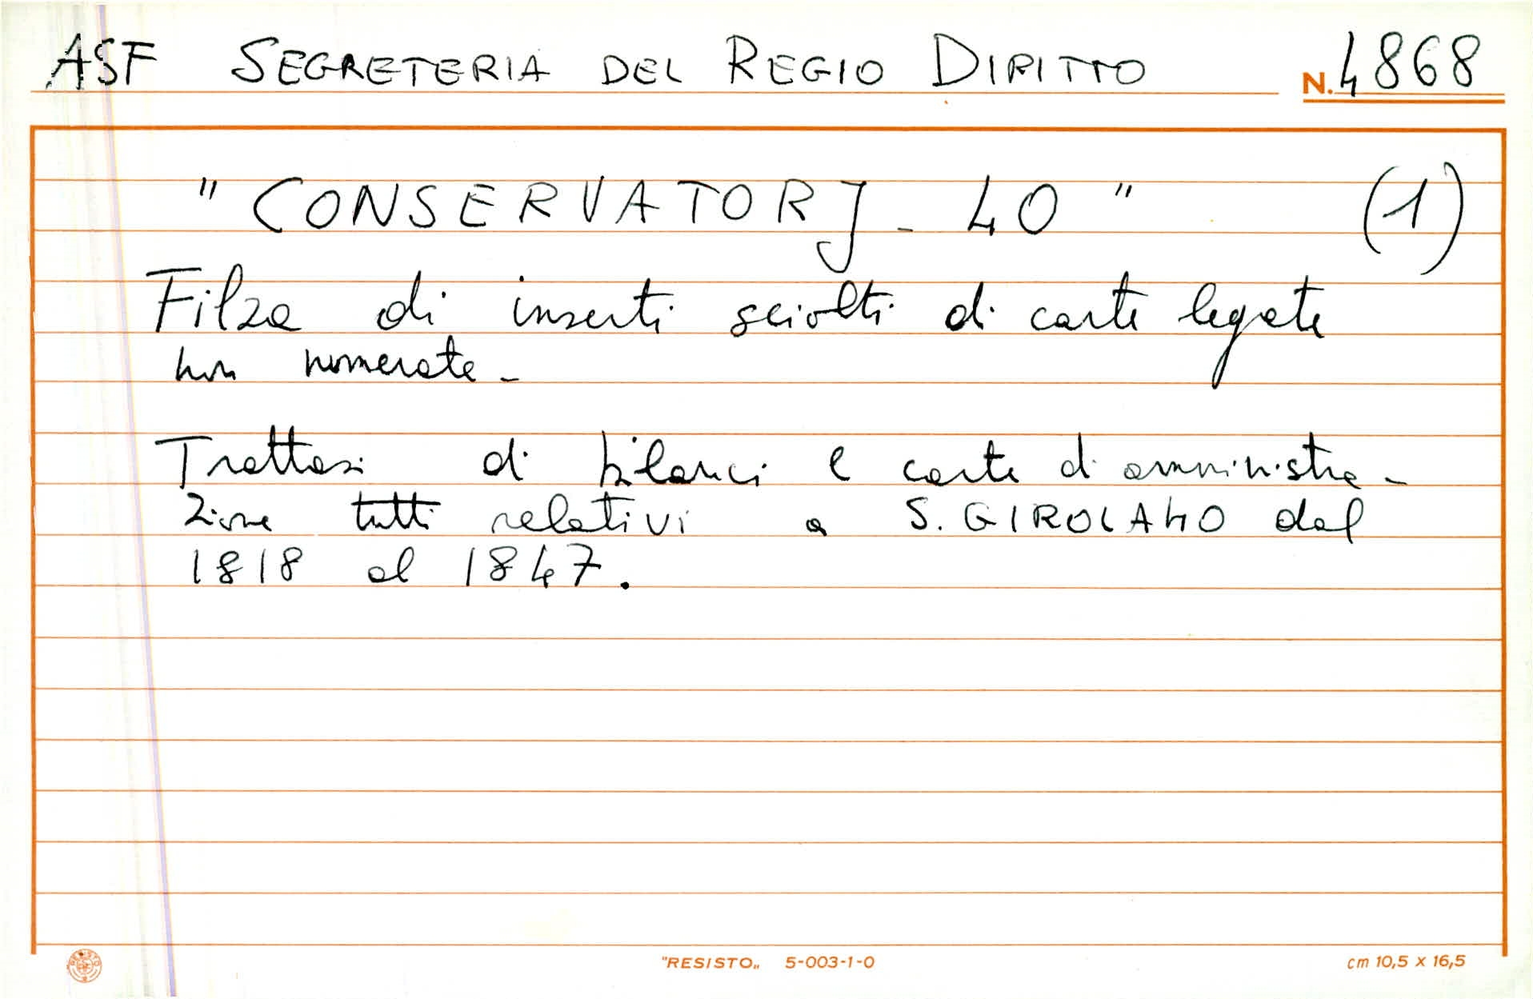 ASF SEGRETERIA DEL REGIO DIRITTO N. 4868
"CONSERVATORJ - 40" (1)
Filza di inserti sciolti di carte legate
non numerate -
Trattasi di bilanci e carte di amministra-
zione tutti relativi a S. GIROLAMO dal
1818 al 1847.
"RESISTO„ 5-003-1-0 cm 10,5 x 16,5